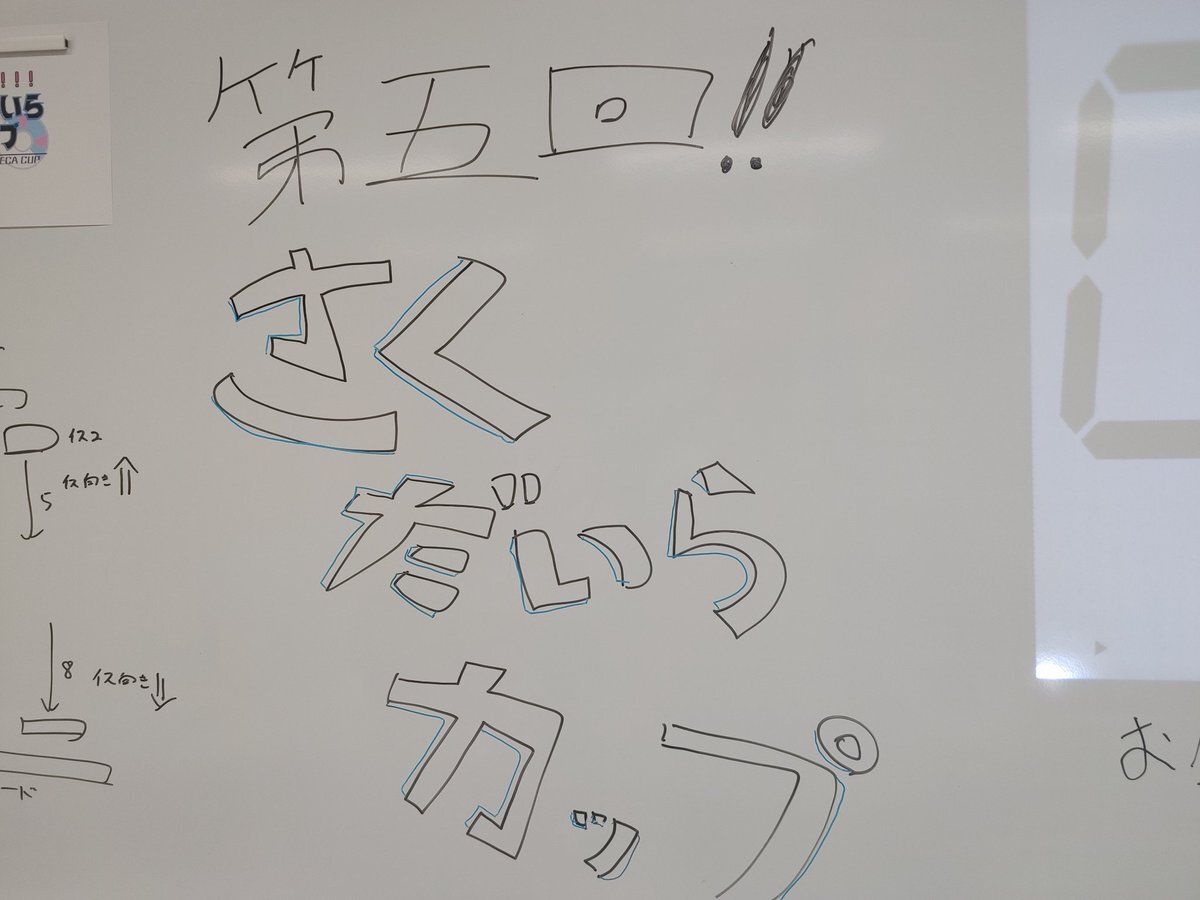 第五回!!
さく
だいら
カップ
!!!
いら
プ
ECA CUP
イス2
5 イス向き⇑
8 イス向き⇓
ード
む